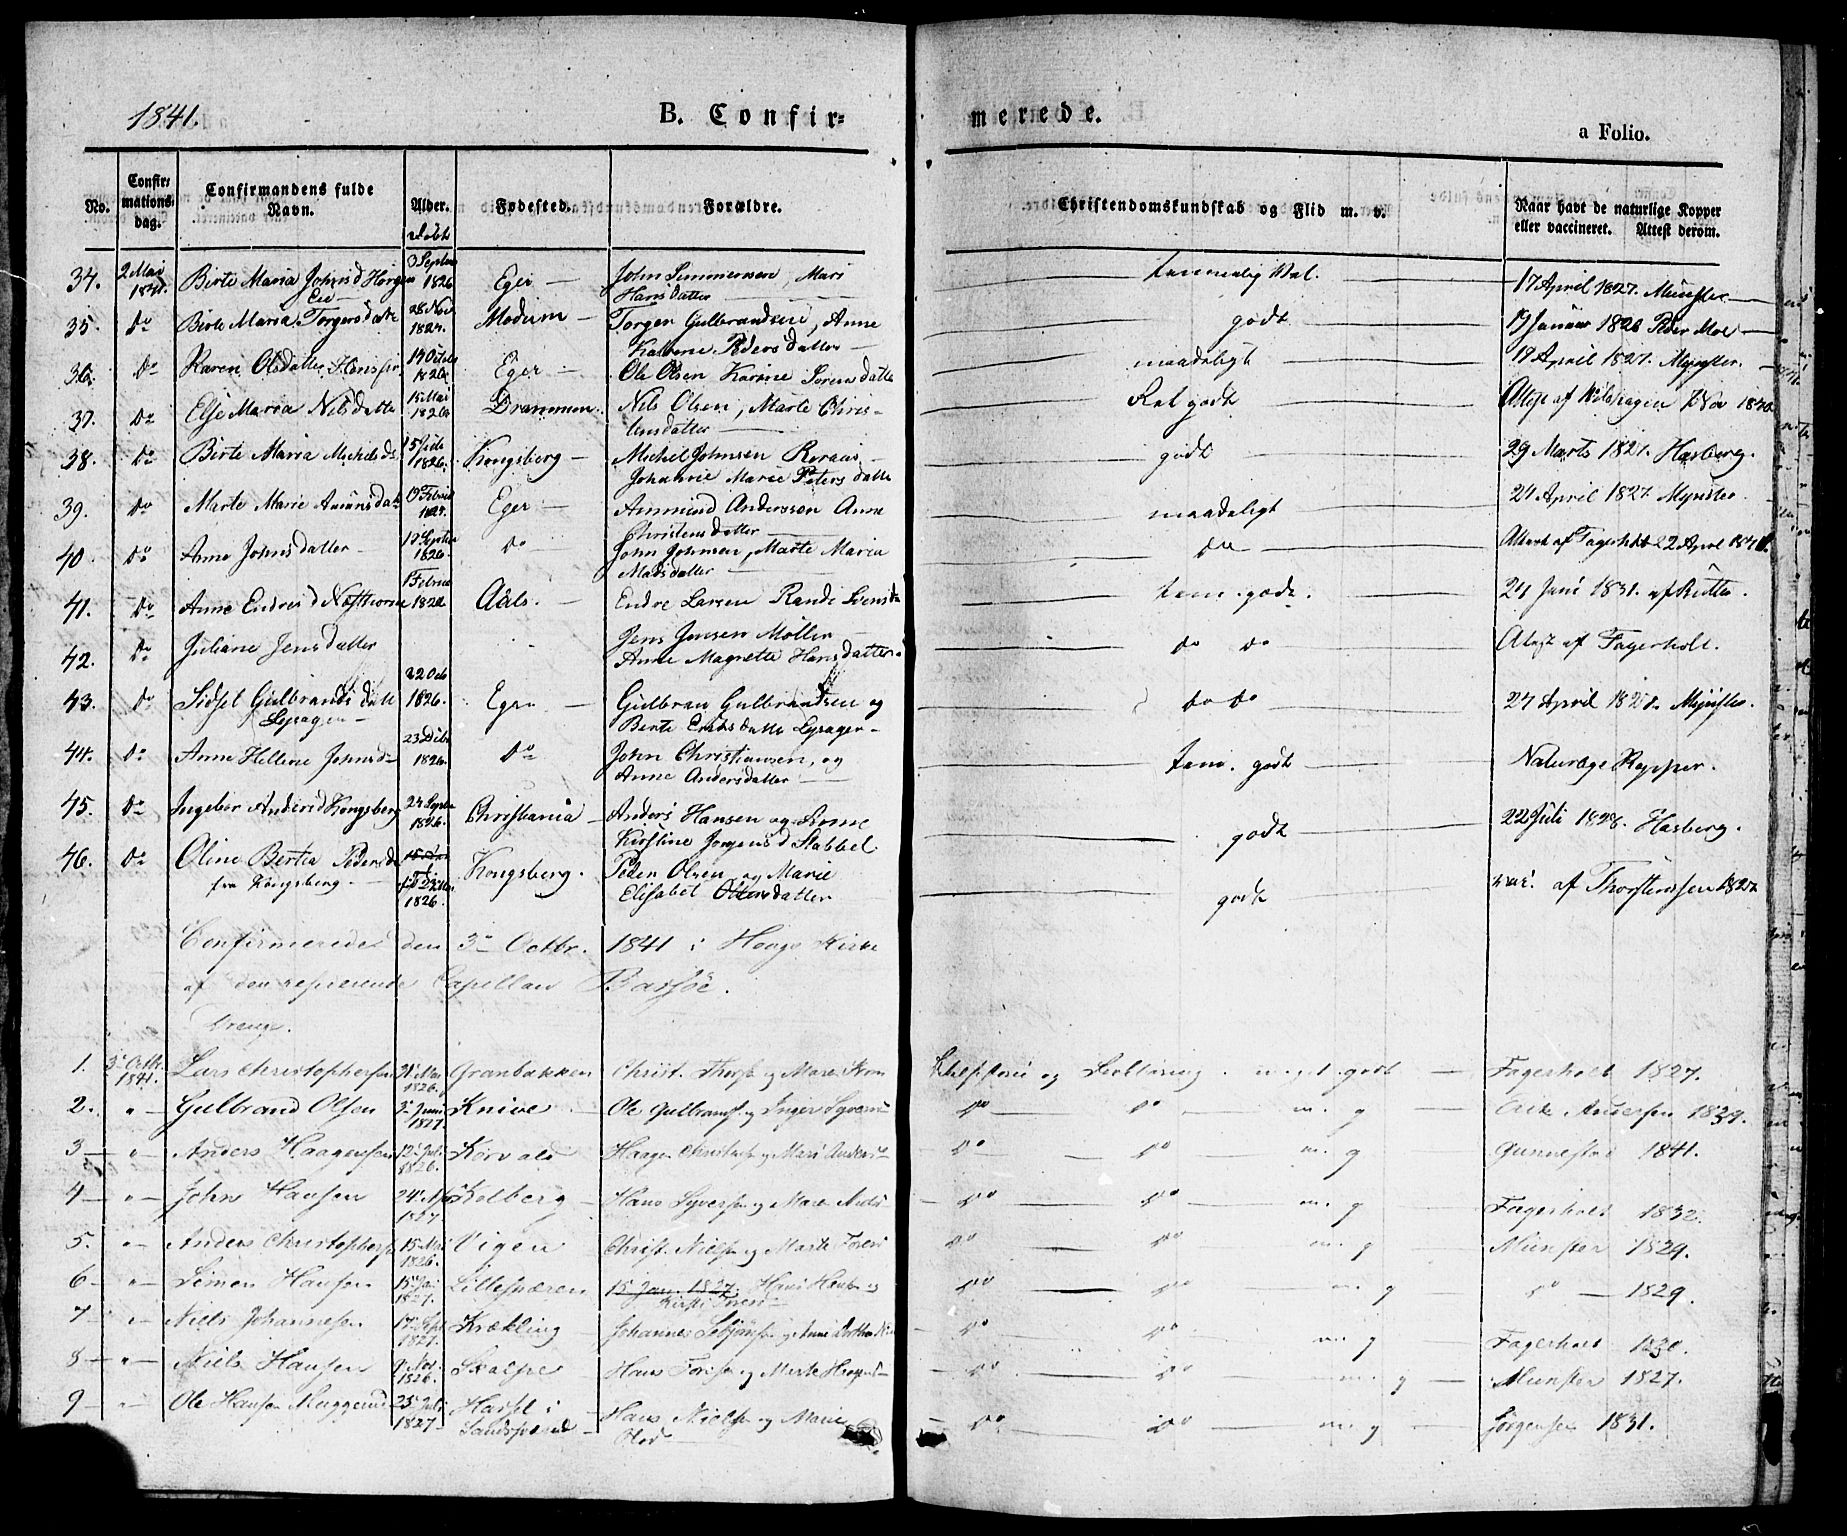 1841.
B. Confir=
merede.
a Folio.
No.
Confir= mations= dag.
Confirmandens fulde Navn.
Alder.
Fødested.
Forældre.
Christendomskundskab og Flid m. v.
Naar havt de naturlige Kopper eller vaccineret. Attest derom.
34. 2 Mai 1841. Birte Maria Johnsd Horgen Eie 3 Septbr 1826 Eger John Simmensen, Mari Hansdatter temmelig Vel. 17 April 1827. Münster
35. Do Birte Maria Torgersdatte 28 Nov 1824. Modum Torger Gulbrandsen, Anne Kathrine Pedersdatter godt 19 Januar 1826 Peder Moe
36. Do Karen Olsdatter 14 Octob 1826 Eger Ole Olsen Karine Sorensdatte maadeligt 19 April 1827. Mynster.
37. Do Else Maria Nilsdatte 15 Mai 1826 Drammen. Nils Olsen, Marte Chris= tensdatter Ret godt Attest af
38. Do Birte Maria Michelsd 15 Jule 1826. Kongsberg Michel Johnsen Johanne Marie Petersdatte godt 29 Marts 1827. Hasberg.
39. Do Marte Marie Amunsdat 19 Februar Eger Ammund Anderssøn Anne Christensdatter maadeligt 24 April 1827 Mynster
40. Do Anne Johnsdatter 19 Septbr 1826. Do John Johnsen, Marte Maria Madsdatter Do Attest af Fagerholt 22 April
41. Do Anne Endresd 1 Februar Aals. Endre Larsen Randi Svensd tem. godt. 24 Juni 1831. af
42. Do Juliane Jensdatter Jens Jensen Möller Anne Magrette Hansdatter Do Do Attest af Fagerholt.
43. Do Sidsel Gulbrandsdatt Lysager 22 Octb 1826. Eger Gulbran Gulbrandsen og Berte Eriksdatte Lysager Do Do 24 April Mynster
44. Do Anne Helline Johnsd 23 Debr 1826 Do John Christiansen, og Anne Andersdatter tem. godt Kopper.
45. Do Ingebor Andersd Kongsberg 24 Septbr 1826. Christiania Anders Hansen og Kirstine Jorgensd Stabbel godt 22 Juli 1828. Hasberg.
46. Do Oline Bertea Pedersd fra Kongsberg. 1826. Kongsberg. Peder Olsen og Marie Elisabet Olsensdatter godt vac. af Thorstensen 1827
Confirmerede den 3. Octbr. 1841 i Hougs Kirke
af den residerende Capellan
Drenge.
1. 3. Octbr. 1841. Lars Christophersen 21 Mai 1826. Granbakken Christ. Thors og Maren Kl. Historie og Forklaring. meget godt Fagerholt 1827.
2. " Gulbrand Olsen 3. Juni 1827. Knive Ole Gulbrands. og Inger Syversd Do Do m. g Erik Andersen 1839.
3 " Anders Haagensen 12 Juli 1826. Korvald Haagen Christophs og Mari Andersd Do Do m. g Gunnestad 1841.
4 " John Hansen 24. 1827. Kolberg Hans Syversen og Marte Do Do m. g Fagerholt 1832.
5. " Anders Christophers 15 Mai 1826. Vigen Christ. Niels og Marte Toresd Do Do m. g Münster 1829.
6 " Simen Hansen 15 Jan 1827. 15 Jan. 1827. Hans Hans og Kirsti Toresd Do Do m. g Do 1829.
7 " Niels Johannesen 17 Sept 1827. Krækling Johannes og Anne Dorthea Do Do m. g Fagerholt 1830.
8 " Niels Hansen 9 Nov. 1826. Hans Tores og Marte Do Do m. g Münster 1827.
9 " Ole Hansen Muggerud 25 Juli 1827 i Hans Niels og Marie Olsd Do Do m. g Jörgensen 1831.